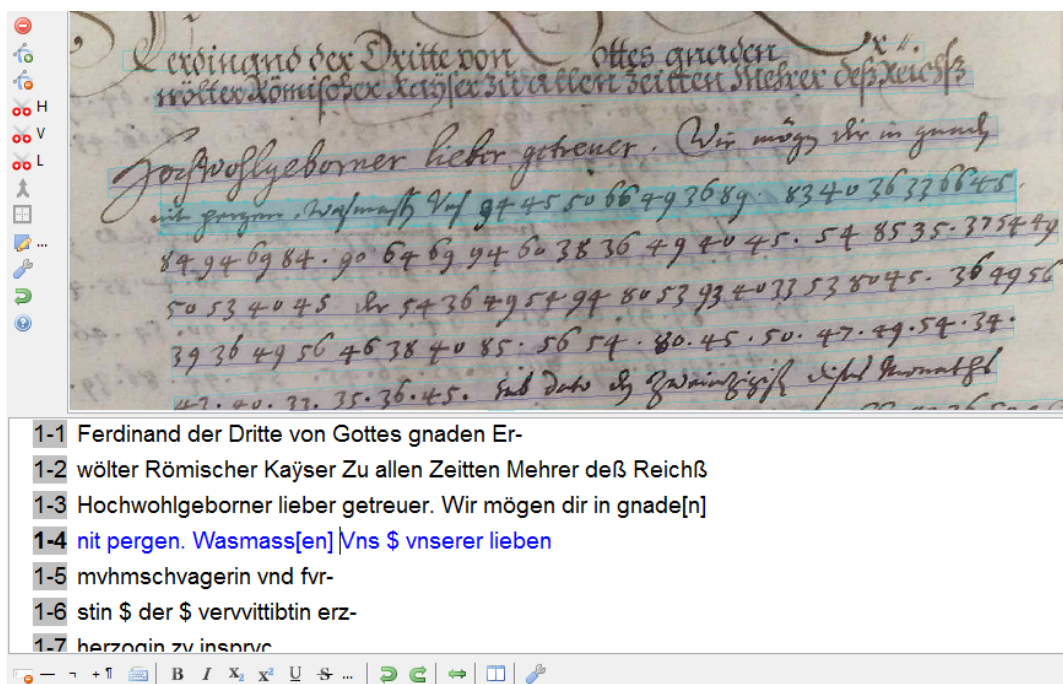 Ferdinand der Dritte von Gottes gnaden Er.
wölter Römischer Kaÿser Zu allen Zeitten Mehrer deß Reichß
H
V
Hochwohlgeborner lieber getreuer. Wir mög dir in gnad
L
nit pergen, Wasmass Vns 94 45 50 66 49 36 89. 83 40 36 33 66 45.
84 94 69 84. 90 64 69 94 60 38 36 49 40 45. 54 85 35. 37 54 49
...
50 53 40 45 der 54 36 49 54 94 80 53 93 40 33 53 80 45. 36 49 56
39 36 49 56 46 38 40 85. 56 54. 80. 45. 50. 47. 49. 54. 34.
40. 33. 35. 36. 45. sub dato dises Monaths
1-1 Ferdinand der Dritte von Gottes gnaden Er-
1-2 wölter Römischer Kaÿser Zu allen Zeitten Mehrer deß Reichß
1-3 Hochwohlgeborner lieber getreuer. Wir mögen dir in gnade[n]
1-4 nit pergen. Wasmass[en] Vns $ vnserer lieben
1-5 mvhmschvagerin vnd fvr-
1-6 stin $ der $ vervvittibtin erz-
1-7 herzogin zv inspryc
— ¬ +¶ B I X₂ X² U S ...